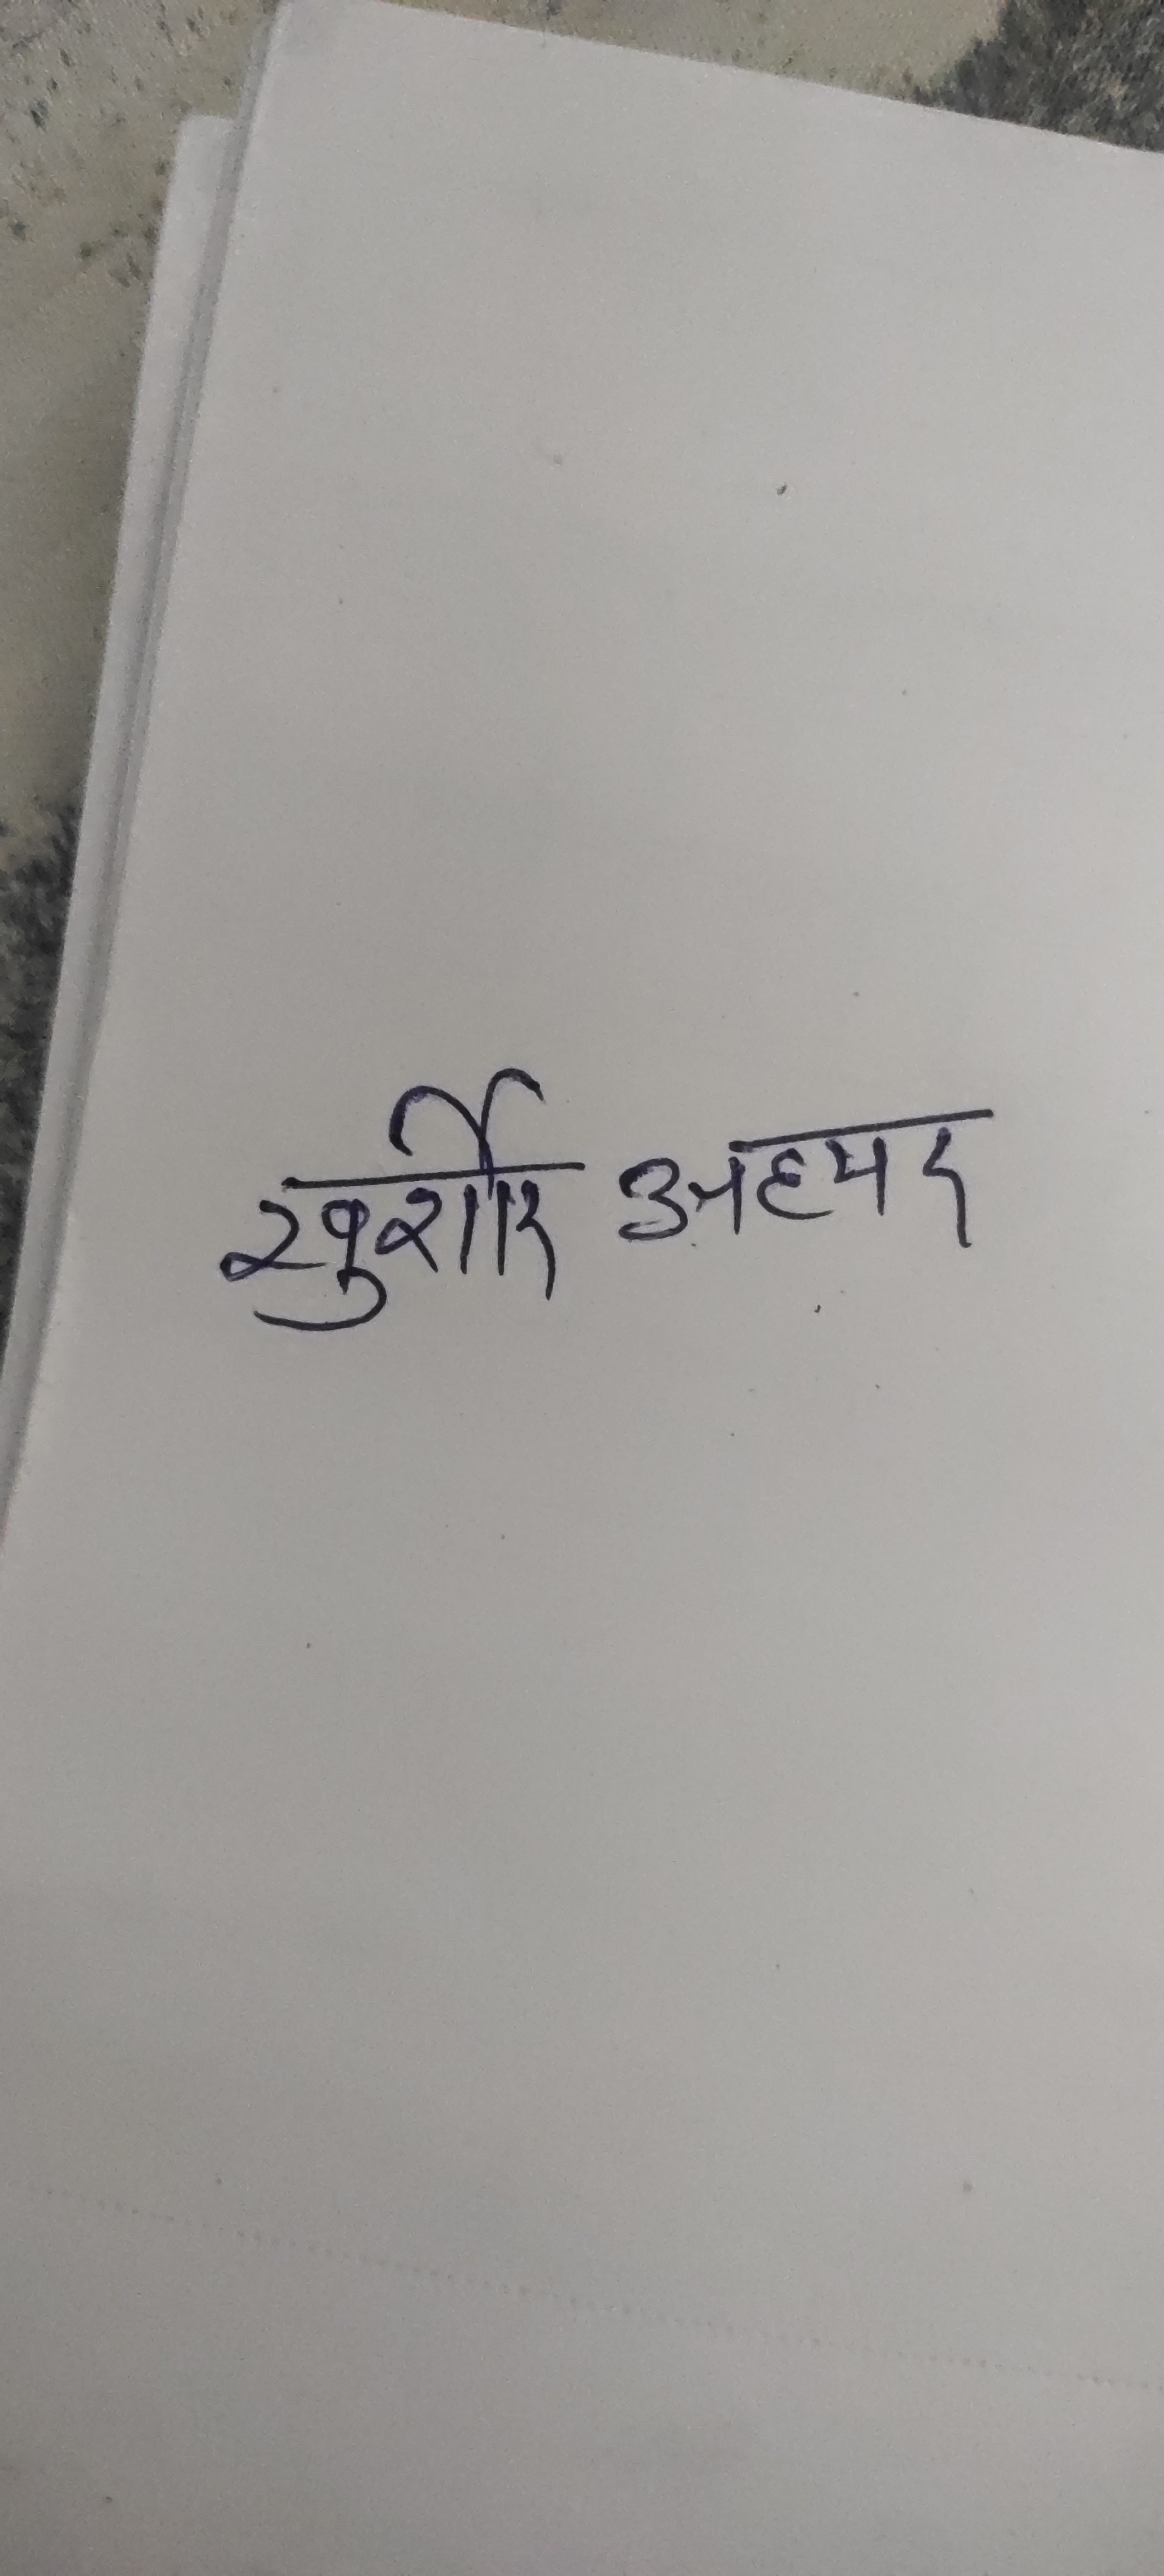 खुर्शीद अहमद